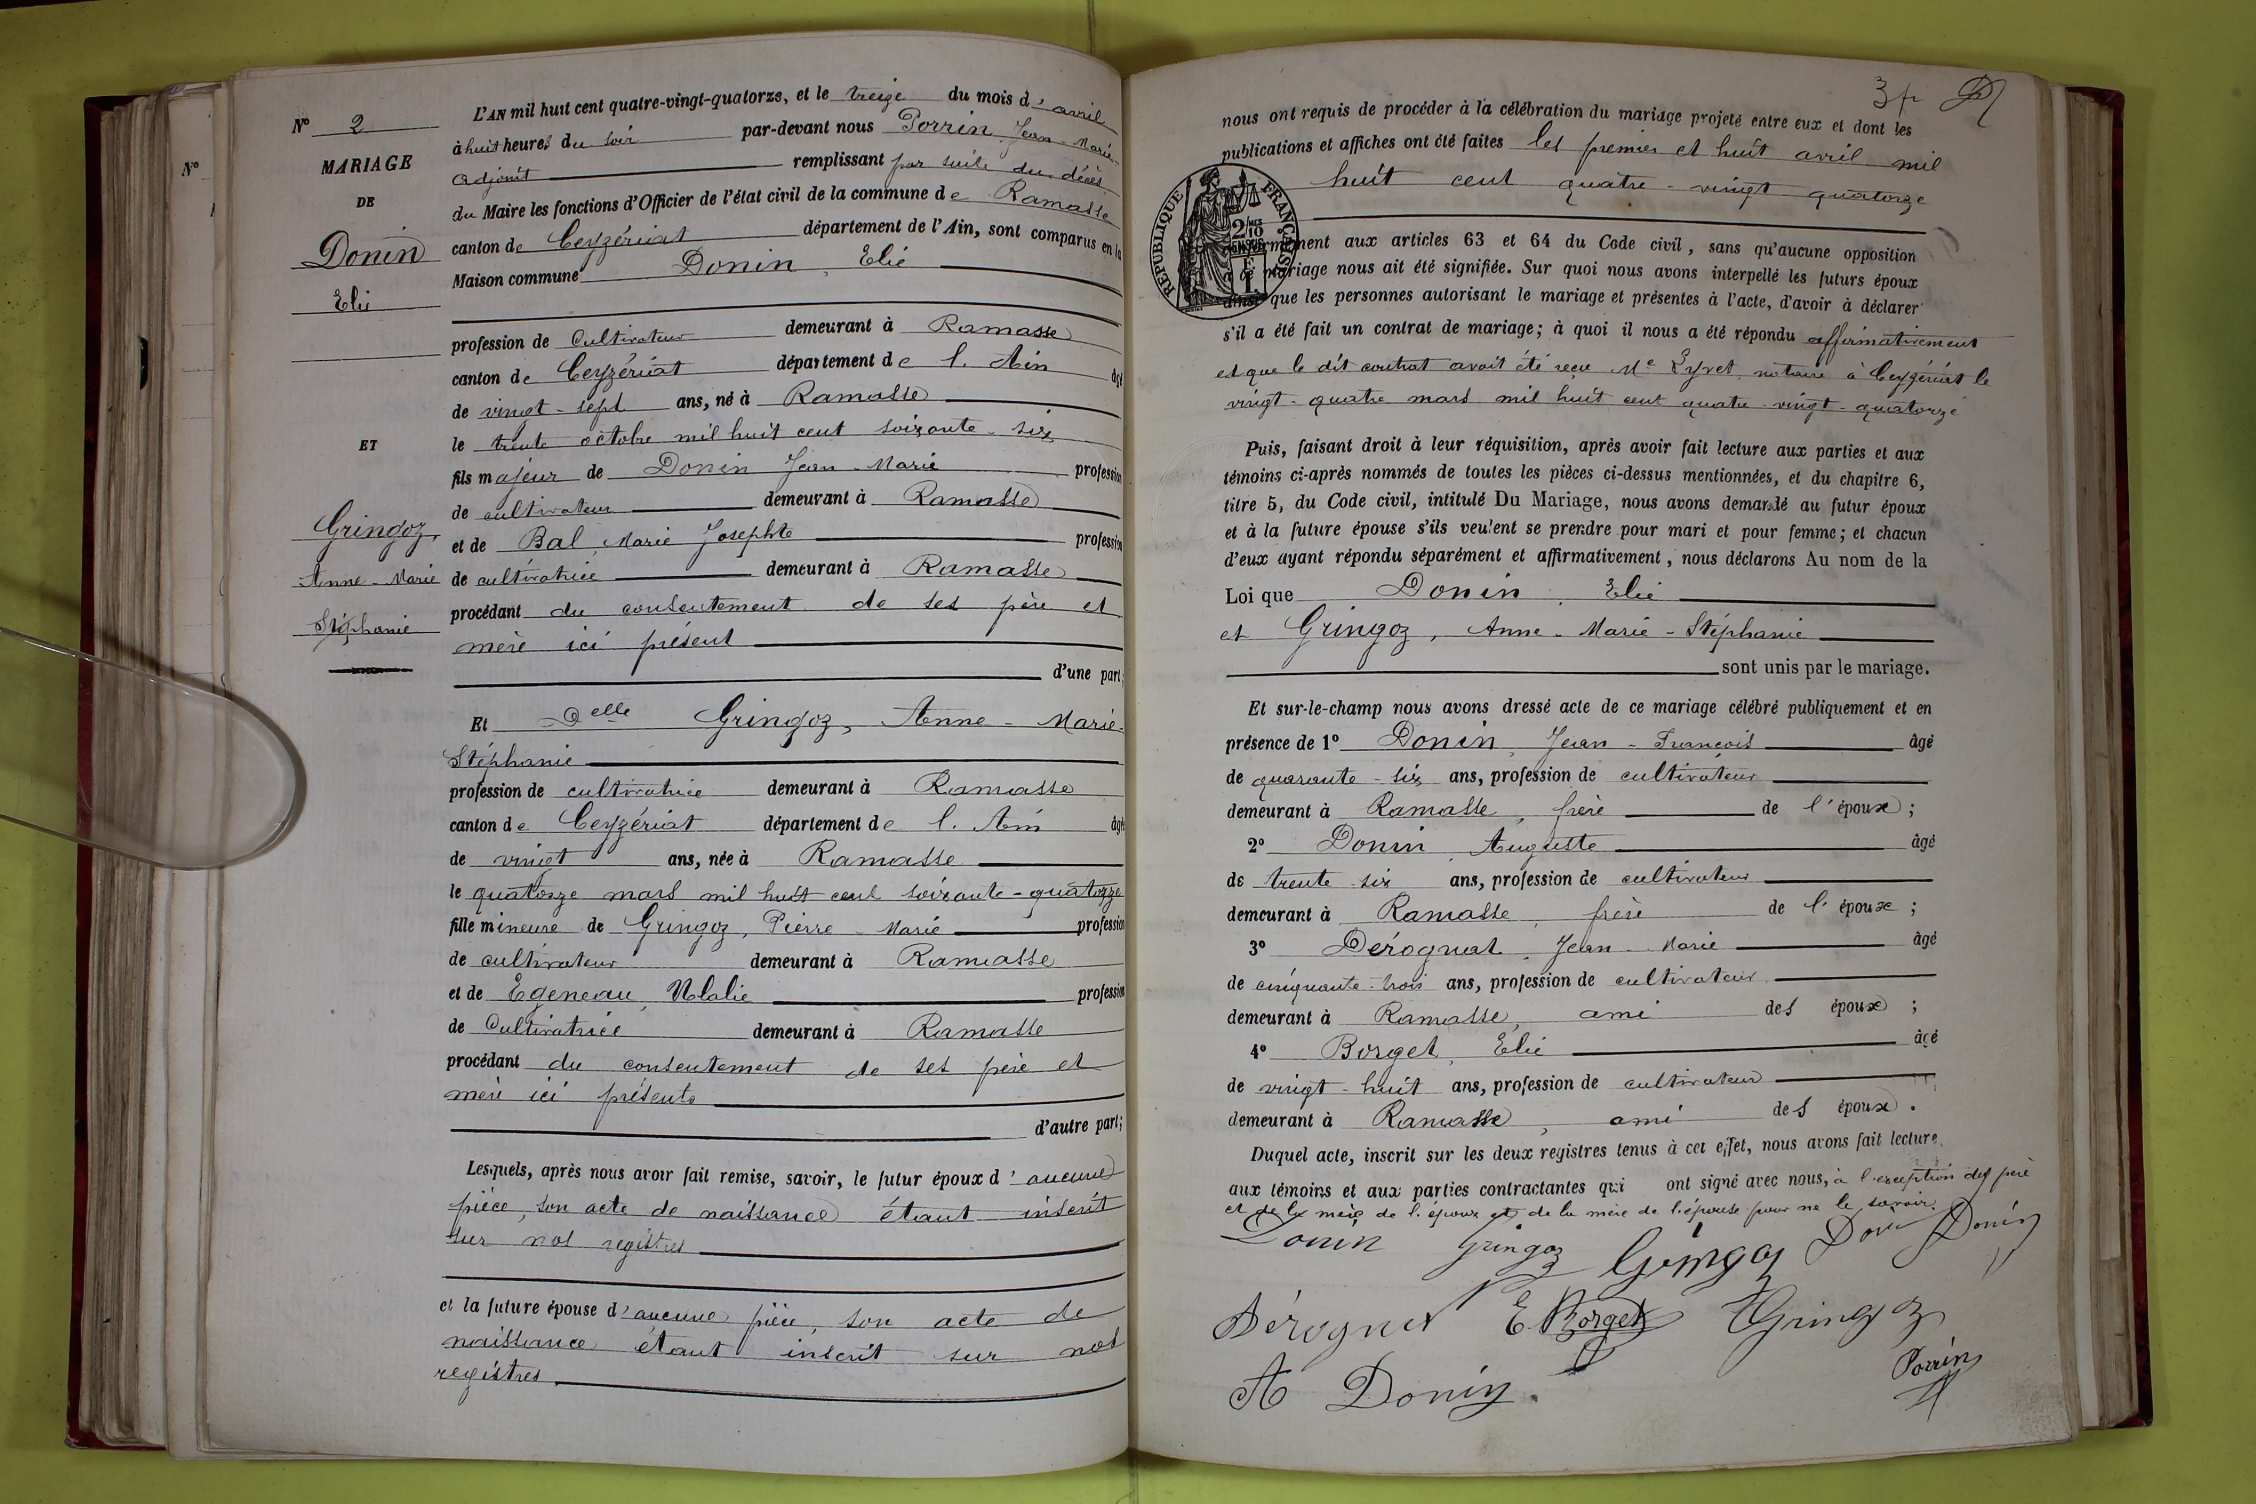 N° 2
MARIAGE
DE
Donin
Elie
ET
Gringoz,
Anne-Marie
Stéphanie
N°
L'AN mil huit cent quatre-vingt-quatorze, et le treize du mois d'avril
à huit heures du soir par-devant nous Porrin Jean-Marie
adjoint remplissant par suite du décès
du Maire les fonctions d'Officier de l'état civil de la commune de Ramasse
canton de Ceyzériat département de l'Ain, sont comparus en la
Maison commune Donin, Elie
profession de Cultivateur demeurant à Ramasse
canton de Ceyzériat département de l'Ain âgé
de vingt-sept ans, né à Ramasse
le trente octobre mil huit cent soixante-six
fils majeur de Donin Jean-Marie profession
de cultivateur demeurant à Ramasse
et de Bal, Marie Josephte profession
de cultivatrice demeurant à Ramasse
procédant du consentement de ses père et
mère ici présent
d'une part;
Et Delle Gringoz, Anne-Marie-
Stéphanie
profession de cultivatrice demeurant à Ramasse
canton de Ceyzériat département de l'Ain âgé
de vingt ans, née à Ramasse
le quatorze mars mil huit cent soixante-quatorze
fille mineure de Gringoz, Pierre-Marie profession
de cultivateur demeurant à Ramasse
et de Egeneau, Ulalie profession
de Cultivatrice demeurant à Ramasse
procédant du consentement de ses père et
mère ici présents
d'autre part;
Lesquels, après nous avoir fait remise, savoir, le futur époux d'aucune
pièce, son acte de naissance étant inscrit
sur nos registres
et la future épouse d'aucune pièce, son acte de
naissance étant inscrit sur nos
registres
3 fr
nous ont requis de procéder à la célébration du mariage projeté entre eux et dont les
publications et affiches ont été faites les premier et huit avril mil
huit cent quatre-vingt quatorze
RÉPUBLIQUE FRANÇAISE
aux articles 63 et 64 du Code civil, sans qu'aucune opposition
mariage nous ait été signifiée. Sur quoi nous avons interpellé les futurs époux
ainsi que les personnes autorisant le mariage et présentes à l'acte, d'avoir à déclarer
s'il a été fait un contrat de mariage; à quoi il nous a été répondu affirmativement
et que le dit contrat avait été reçu Me Eyret notaire à Ceyzériat le
vingt-quatre mars mil huit cent quatre-vingt-quatorze
Puis, faisant droit à leur réquisition, après avoir fait lecture aux parties et aux
témoins ci-après nommés de toutes les pièces ci-dessus mentionnées, et du chapitre 6,
titre 5, du Code civil, intitulé Du Mariage, nous avons demandé au futur époux
et à la future épouse s'ils veulent se prendre pour mari et pour femme; et chacun
d'eux ayant répondu séparément et affirmativement, nous déclarons Au nom de la
Loi que Donin, Elie
et Gringoz, Anne-Marie-Stéphanie
sont unis par le mariage.
Et sur-le-champ nous avons dressé acte de ce mariage célébré publiquement et en
présence de 1° Donin, Jean-François âgé
de quarante-six ans, profession de cultivateur
demeurant à Ramasse, frère de l'époux;
2° Donin, Auguste âgé
de trente six ans, profession de cultivateur
demeurant à Ramasse, frère de l'époux;
3° Dérognat, Jean-Marie âgé
de cinquante-trois ans, profession de cultivateur
demeurant à Ramasse, ami des époux;
4° Borget, Elie âgé
de vingt-huit ans, profession de cultivateur
demeurant à Ramasse, ami des époux.
Duquel acte, inscrit sur les deux registres tenus à cet effet, nous avons fait lecture
aux témoins et aux parties contractantes qui ont signé avec nous, à l'exception des père
et de la mère de l'époux et de la mère de l'épouse pour ne le savoir.
Donin Gringoz Gringoz Donin
Dérognat E. Borget Gringoz
A Donin Porrin